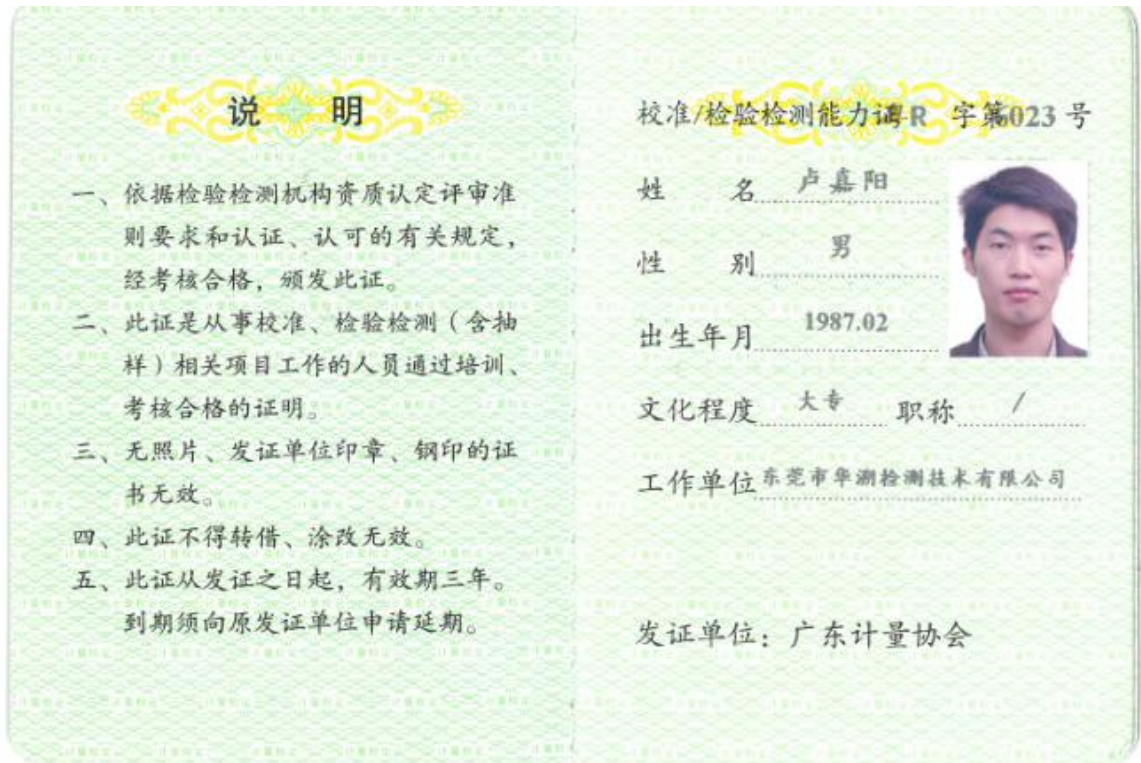 说 明
一、依据检验检测机构资质认定评审准
则要求和认证、认可的有关规定，
经考核合格，颁发此证。
二、此证是从事校准、检验检测（含抽
样）相关项目工作的人员通过培训、
考核合格的证明。
三、无照片、发证单位印章、钢印的证
书无效。
四、此证不得转借、涂改无效。
五、此证从发证之日起，有效期三年。
到期须向原发证单位申请延期。
校准/检验检测能力证 R 字第023 号
姓 名 卢嘉阳
性 别 男
出生年月 1987.02
文化程度 大专 职称 /
工作单位 东莞市华溯检测技术有限公司
发证单位：广东计量协会